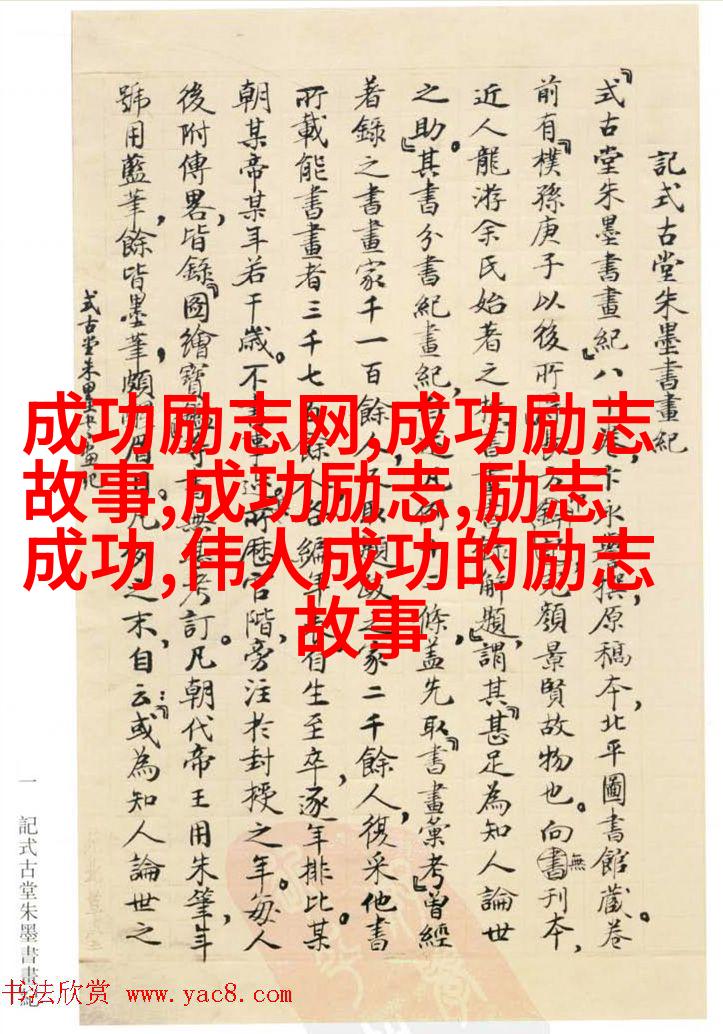 記式古堂朱墨書畫紀
『式古堂朱墨書畫紀』八十卷,卞永譽撰,原稿本,北平圖書館藏。卷
前有『樸孫庚子以後所
景賢故物也。向無刊本,
近人龍游余氏始著之
解題』,謂其『甚足為知人論世
之助』。其書分書紀畫紀,
條,蓋先取『書畫彙考』曾經
著錄之書畫家千一百餘人,
家二千餘人,復采他書
所載能書畫者三千七百餘人,
編年
自生至卒,逐年排比。某
朝某帝某年若干歲。不
所歷官階,旁注於封授之年。每人
後附傳畧,皆錄『圖繪寶鑑
考訂。凡朝代帝王用朱筆,年
號用藍筆,餘皆墨筆,頗
眉目。
之末,自云:『或為知人論世之
式古堂朱墨書畫紀
一
記式古堂朱墨書畫紀
成功励志网,成功励志
故事,成功励志,励志
成功,伟人成功的励志
故事
书法欣赏 www.yac8.com